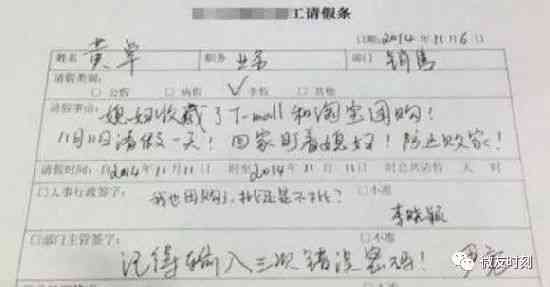 工请假条
日期:2014年11月6日
姓名 黄 职务 业务 部门 销售
请假类别:
□公假 □病假 ✓事假 □其他
请假事由: 媳妇收藏了T-mall和淘宝团购!
11月11日请假一天! 回家盯着媳妇! 防止败家!
请假时间:自2014年11月11日 时至2014年11月11日 时总共请特 天 时
□人事行政签字: 我也团购了,批还是不批? □不准
李晓颖
□部门主管签字: □不准
记得输入三次错误密码!
微友时刻